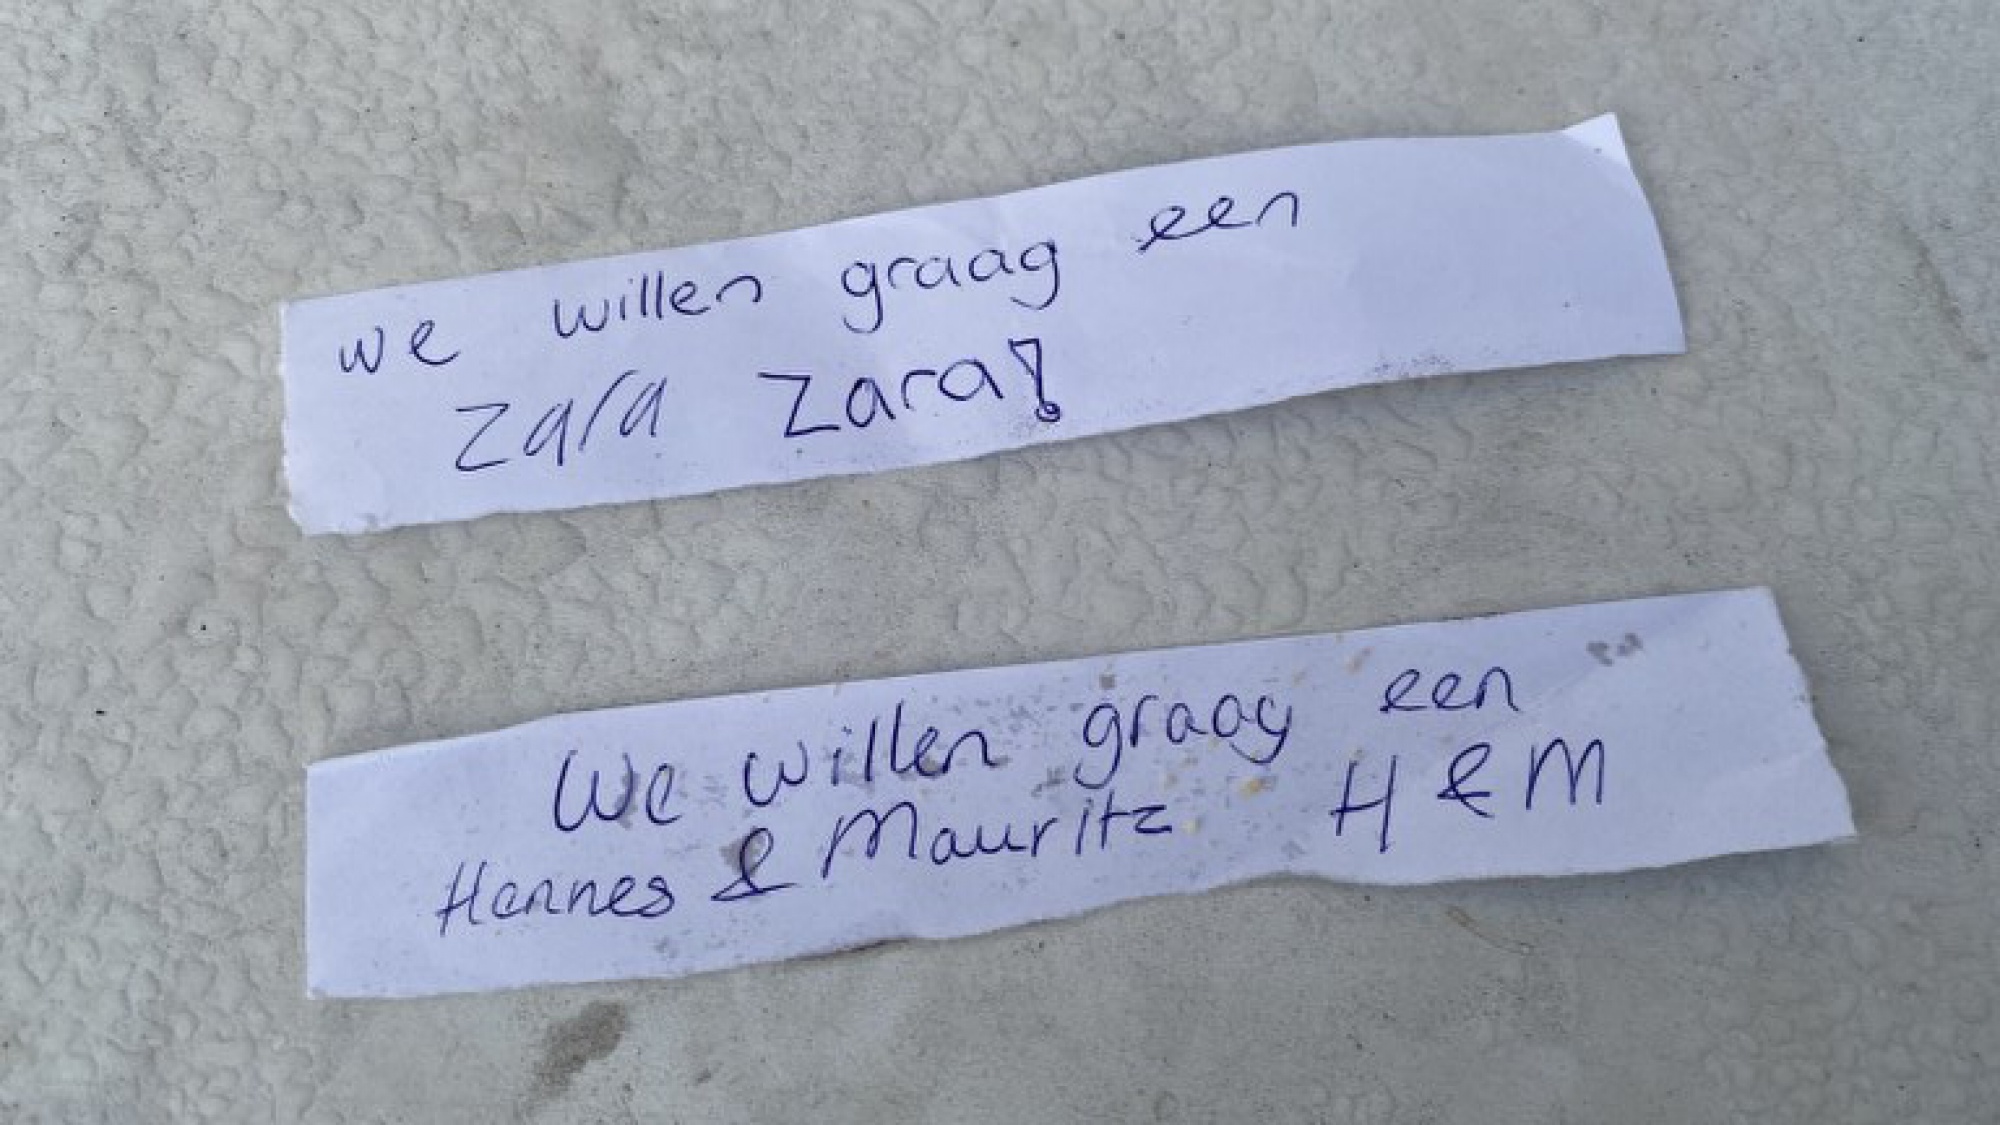 we willen graag een
zara zara!
We willen graag een
Hennes & Mauritz H & M